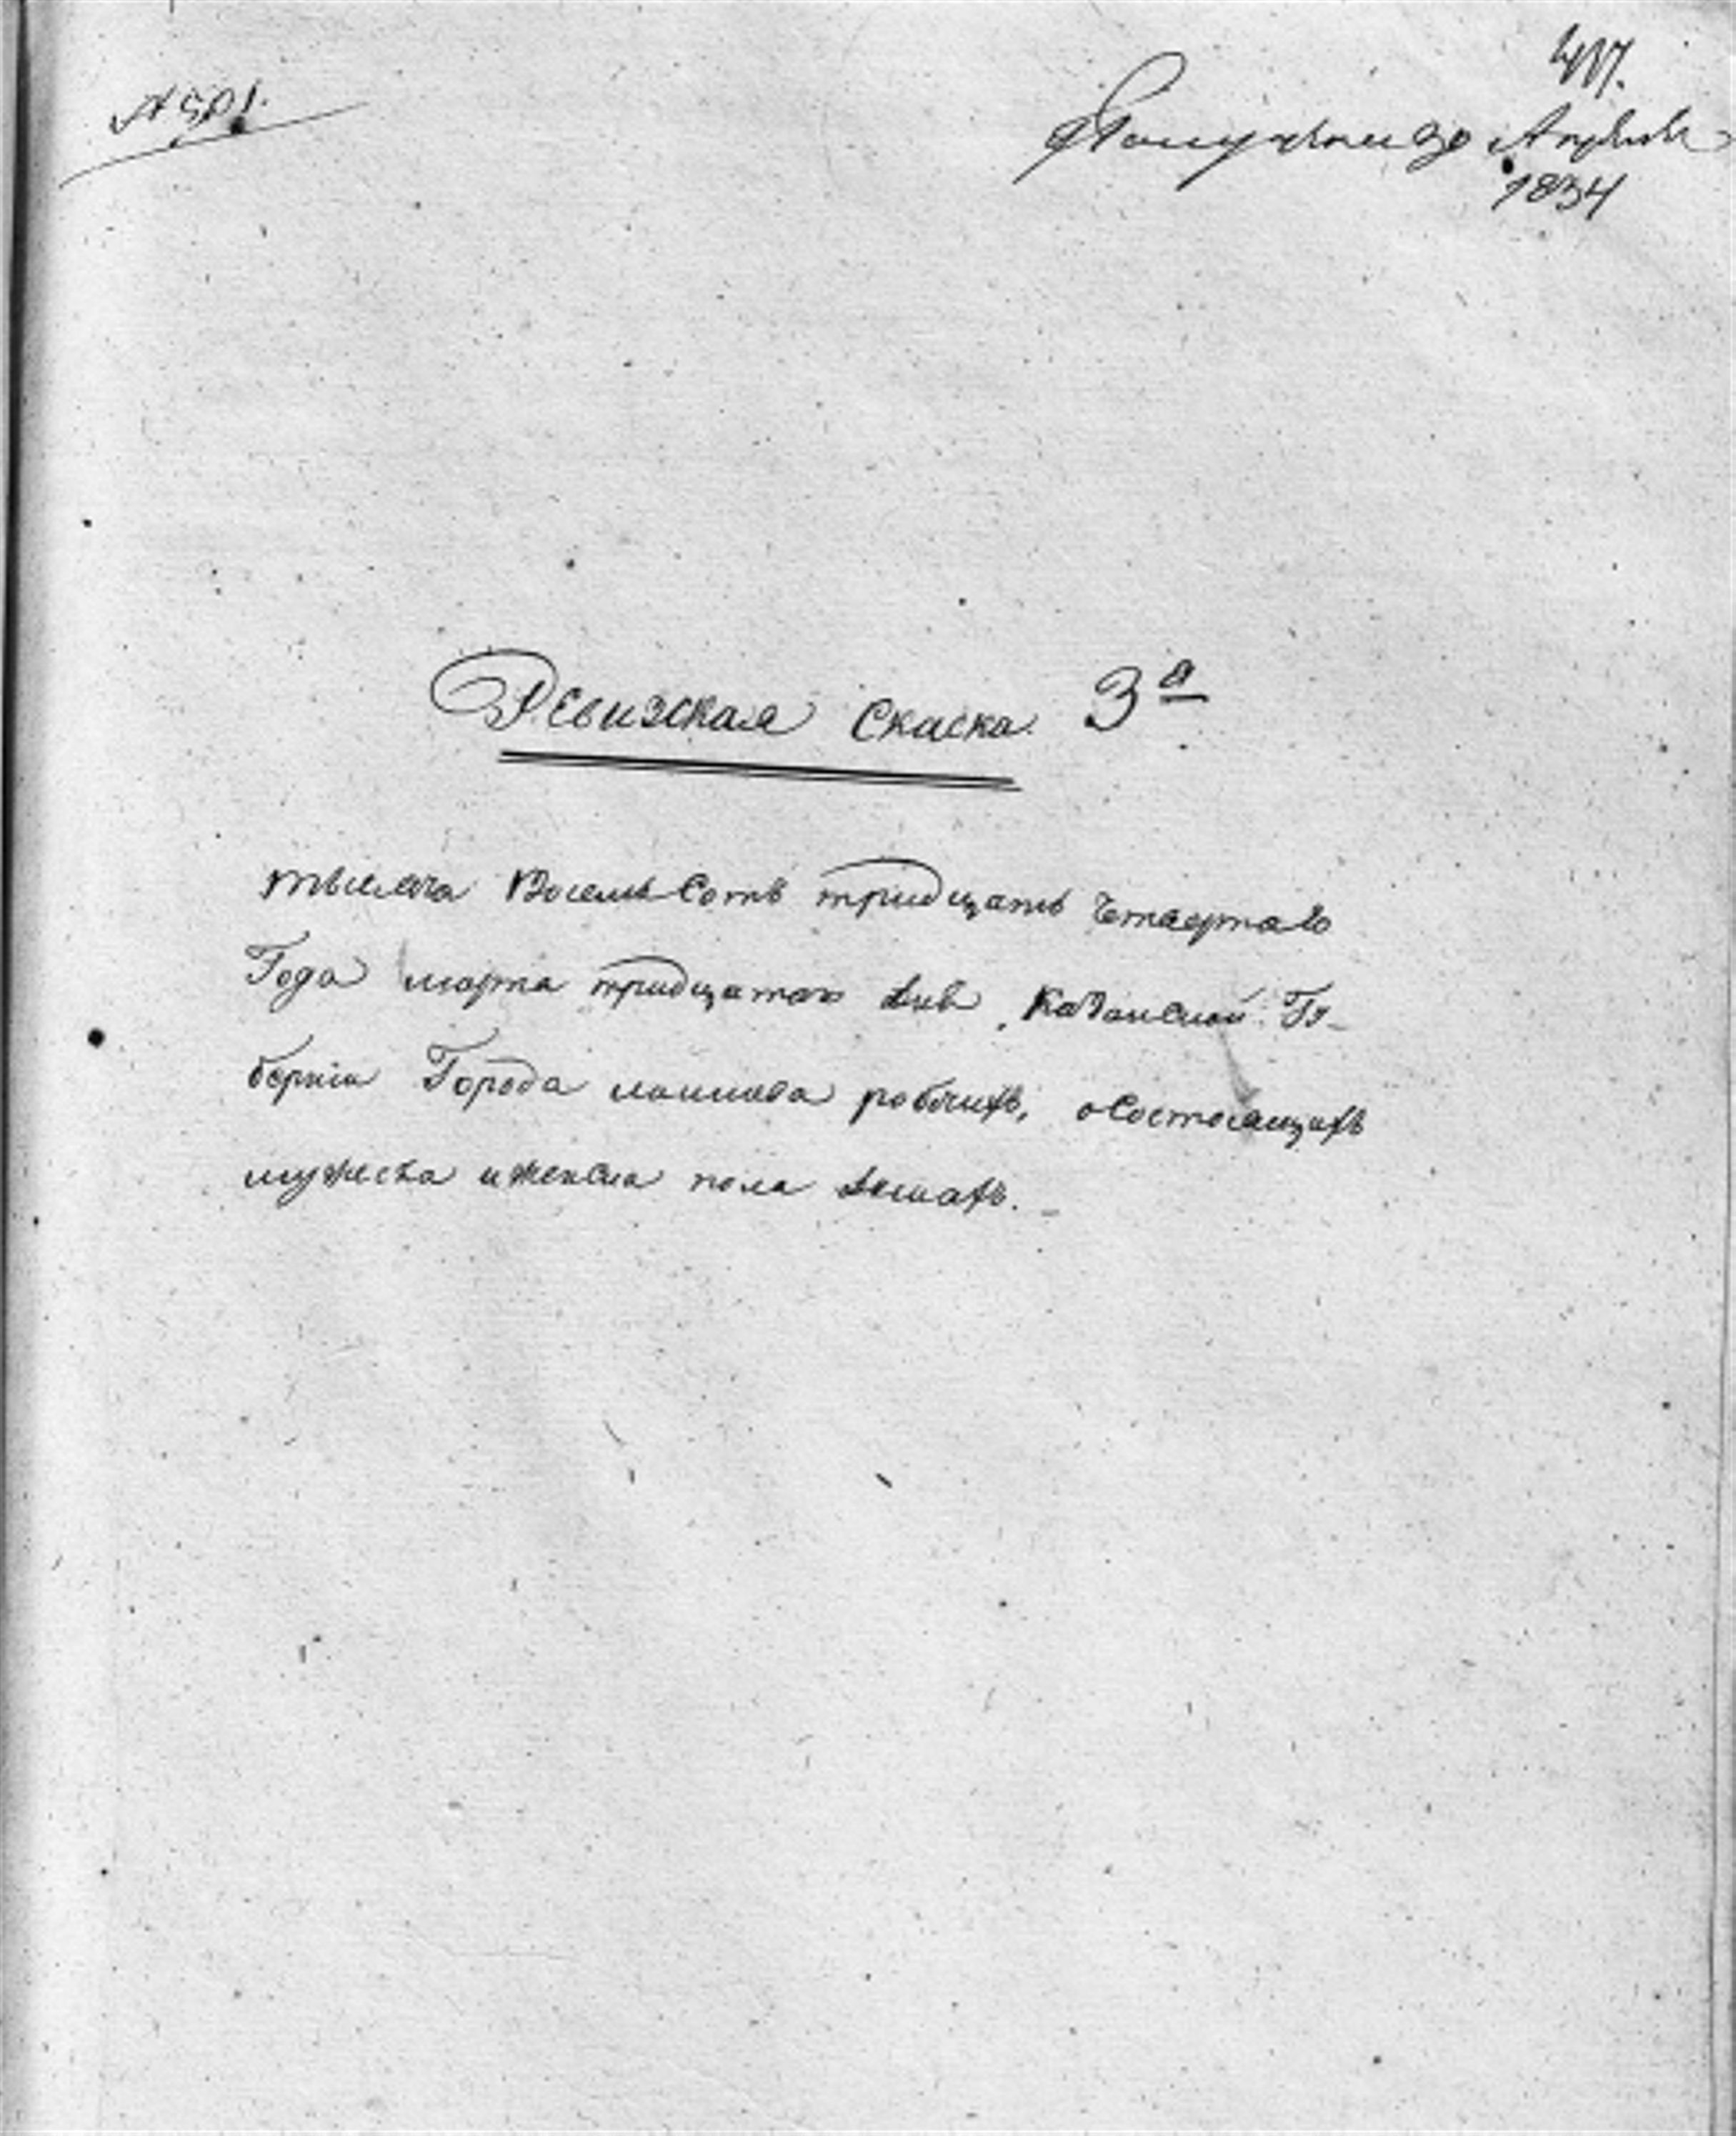 № 501.
417.
Получена 30 Апреля
1834
Ревизская скаска 3я
тысяча Восемь Сотъ тридцать Четвертаго
Года марта тридцатаго дня, Казанской Гу-
берніи Города лаишева рабочихъ, о Состоящихъ
мужеска и женска пола душахъ.